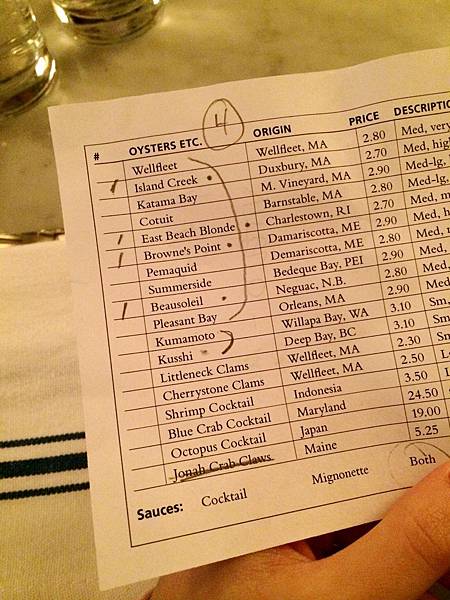 # OYSTERS ETC. 4 ORIGIN PRICE DESCRIPTIO
Wellfleet Wellfleet, MA 2.80 Med, very
1 Island Creek Duxbury, MA 2.70 Med, hig
Katama Bay M. Vineyard, MA 2.90 Med-lg,
Cotuit Barnstable, MA 2.80 Med-lg,
1 East Beach Blonde Charlestown, R.I 2.70 Med, m
1 Browne's Point Damariscotta, ME 2.90 Med, h
Pemaquid Demariscotta, ME 2.80 Med,
Summerside Bedeque Bay, PEI 2.90 Med,
1 Beausoleil Neguac, N.B. 2.80 Med,
Pleasant Bay Orleans, MA 2.90 Med
Kumamoto Willapa Bay, WA 3.10 Sm,
Kusshi Deep Bay, BC 3.10 Sm,
Littleneck Clams Wellfleet, MA 2.30 Sm
Cherrystone Clams Wellfleet, MA 2.50 L
Shrimp Cocktail Indonesia 3.50
Blue Crab Cocktail Maryland 24.50
Octopus Cocktail Japan 19.00
Jonah Crab Claws Maine 5.25
Sauces: Cocktail Mignonette Both